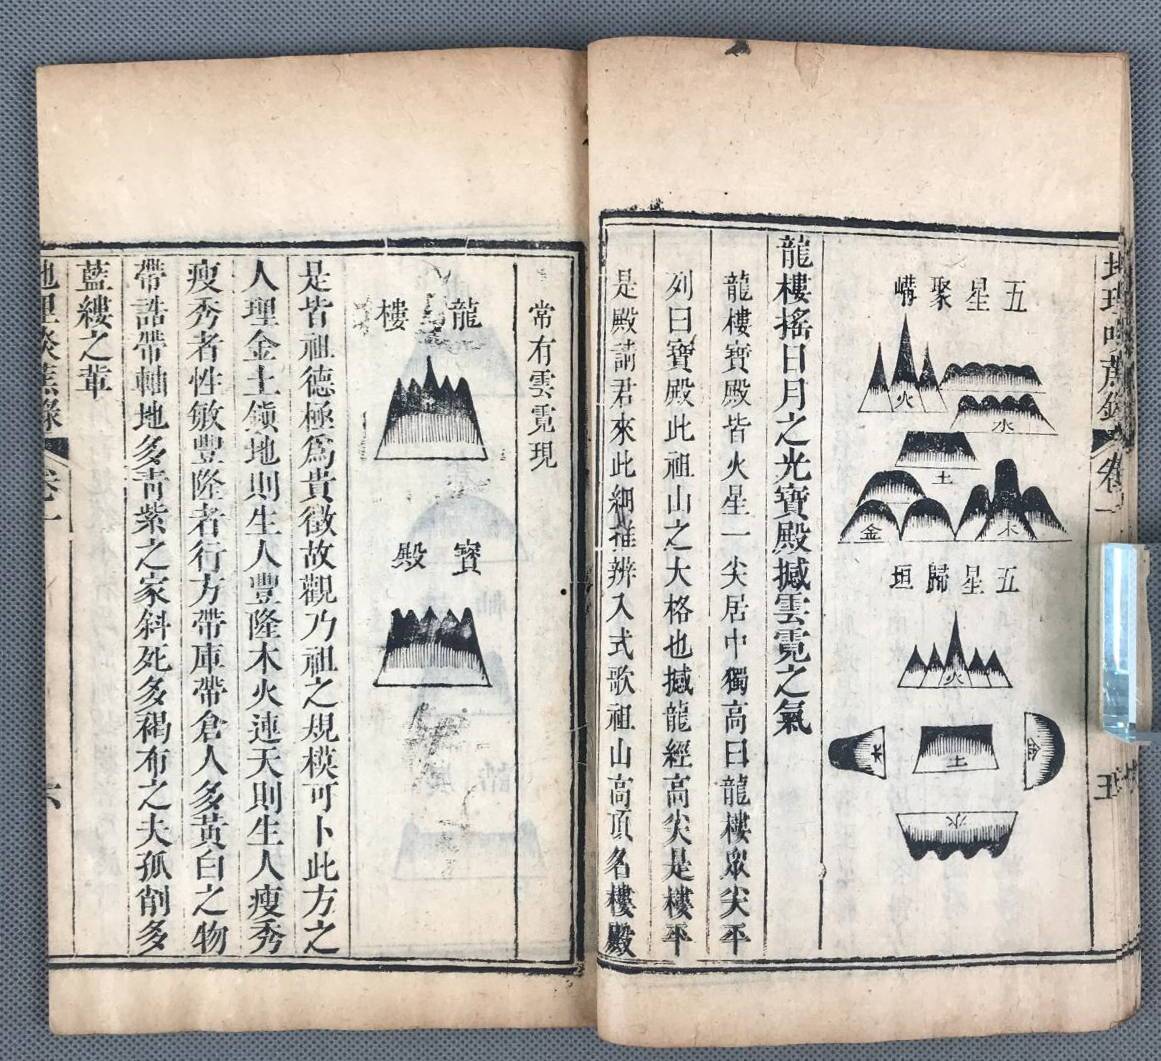 地理啖蔗錄 卷一 五
五星聚
火
水
土
金
木
五星歸垣
火
木
土
金
水
龍樓搖日月之光寶殿撼雲霓之氣
龍樓寶殿皆火星一尖居中獨高曰龍樓眾尖平
列曰寶殿此祖山之大格也撼龍經高尖是樓平
是殿請君來此細推辨入式歌祖山高頂名樓殿
常有雲霓現
龍樓
寶殿
是皆祖德極爲貴徵故觀乃祖之規模可卜此方之
人理金土鎮地則生人豐隆木火連天則生人瘦秀
瘦秀者性敏豐隆者行方帶庫帶倉人多黃白之物
帶誥帶軸地多靑紫之家斜死多褐布之夫孤削多
藍縷之輩
地理啖蔗錄 卷一 六